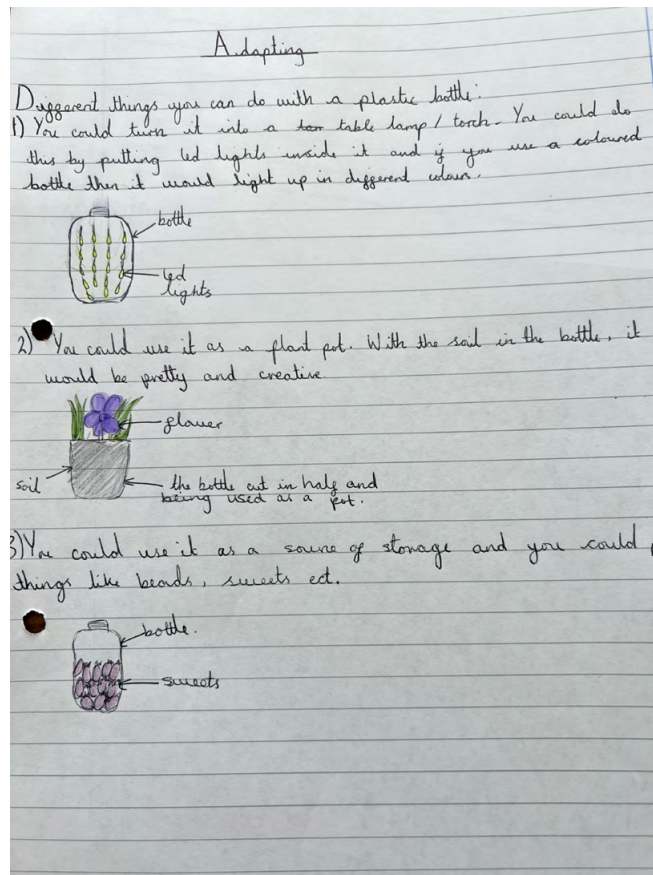 Adapting
Different things you can do with a plastic bottle:
1) You could turn it into a table lamp / torch. You could do
this by putting led lights inside it and if you use a coloured
bottle then it would light up in different colours.
bottle
led
lights
2) You could use it as a plant pot. With the soil in the bottle, it
would be pretty and creative.
flower
soil
the bottle cut in half and
being used as a pot.
3) You could use it as a source of storage and you could
things like beads, sweets ect.
bottle.
sweets